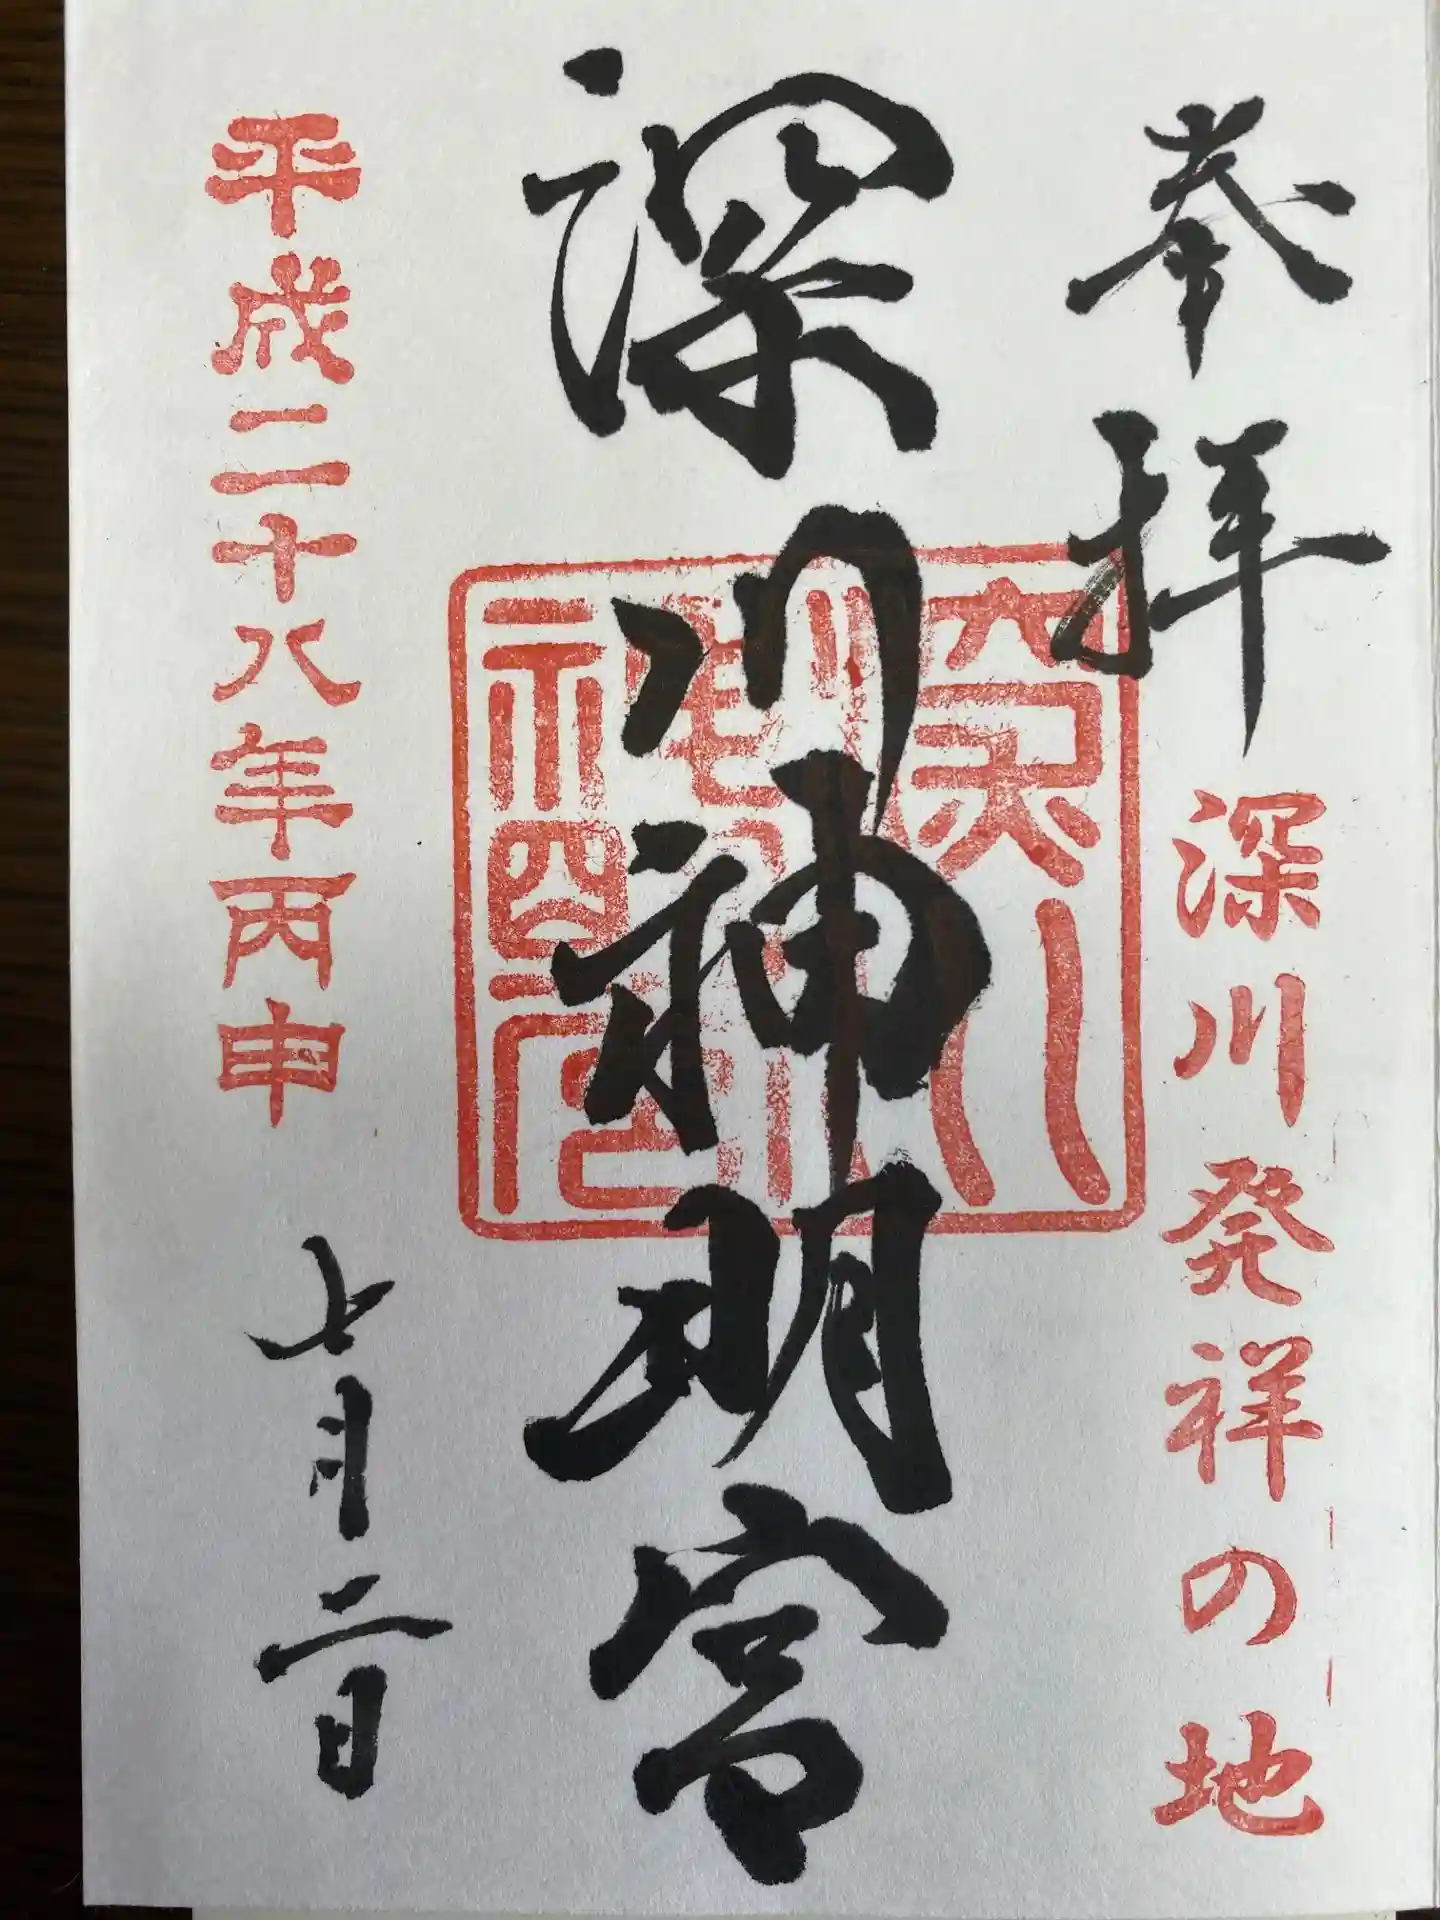 奉拝
深川発祥の地
深川神明宮
平成二十八年丙申
七月二日